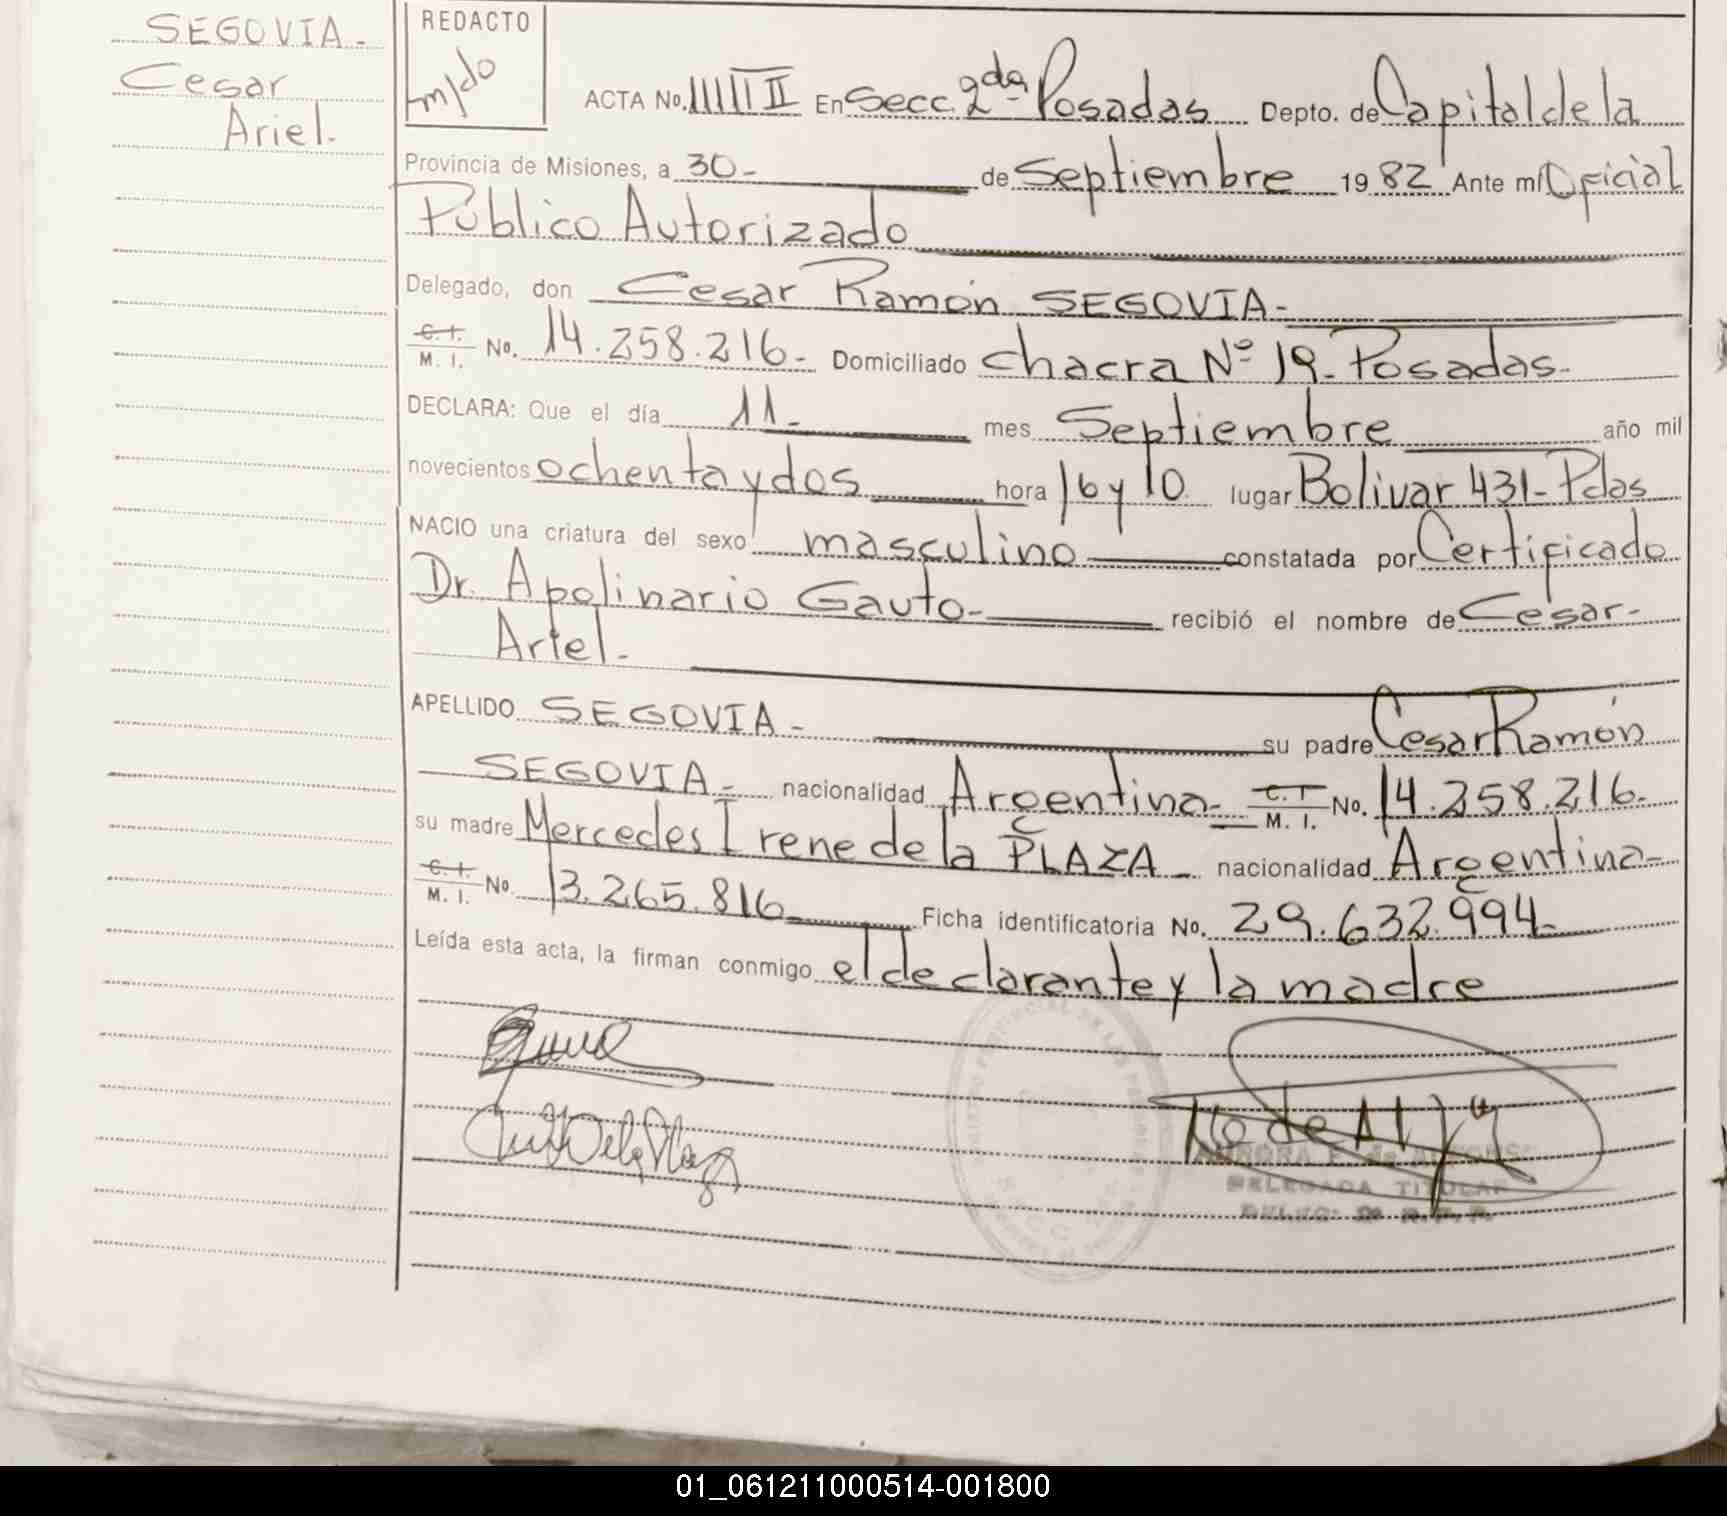 SEGOVIA-
Cesar
Ariel.
REDACTO
m/do
ACTA No. En Secc. 2da Posadas Depto. de Capital de la
Provincia de Misiones, a 30- de Septiembre 1982 Ante mí Oficial
Público Autorizado
Delegado, don Cesar Ramón SEGOVIA-
C. I. M. I. No. 14.258.216- Domiciliado chacra Nº 19- Posadas-
DECLARA: Que el día 11- mes Septiembre año mil
novecientos ochenta y dos hora 16 y 10 lugar Bolivar 431- Pdas
NACIO una criatura del sexo masculino constatada por Certificado
Dr. Apolinario Gauto- recibió el nombre de Cesar-
Ariel-
APELLIDO SEGOVIA- su padre Cesar Ramón
SEGOVIA- nacionalidad Argentina- C. I. M. I. No. 14.258.216-
su madre Mercedes Irene de la PLAZA- nacionalidad Argentina-
C. I. M. I. No. 13.265.816- Ficha identificatoria No. 29.632.994-
Leída esta acta, la firman conmigo el declarante y la madre
DELEGADA TITULAR
01_061211000514-001800